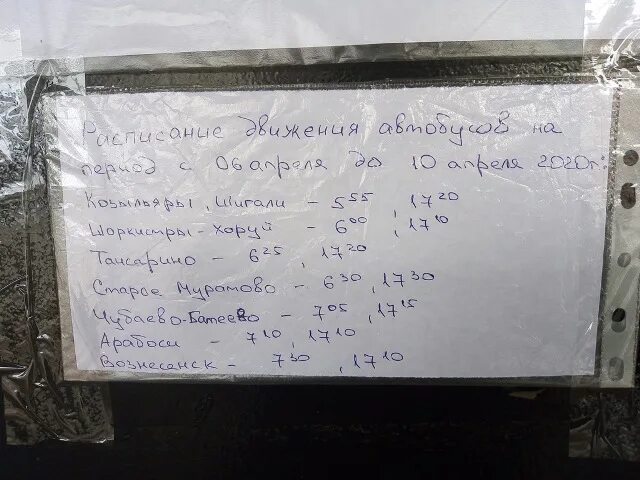 Расписание движения автобусов на
период с 06 апреля до 10 апреля 2020г:
Козыльяры, Шигали - 5⁵⁵, 17²⁰
Шоркистры-Хоруй - 6⁰⁰, 17¹⁰
Тансарино - 6²⁵, 17²⁰
Старое Муратово - 6³⁰, 17³⁰
Чубаево-Батеево - 7⁰⁵, 17¹⁵
Арабоси - 7¹⁰, 17¹⁰
Вознесенск - 7³⁰, 17¹⁰